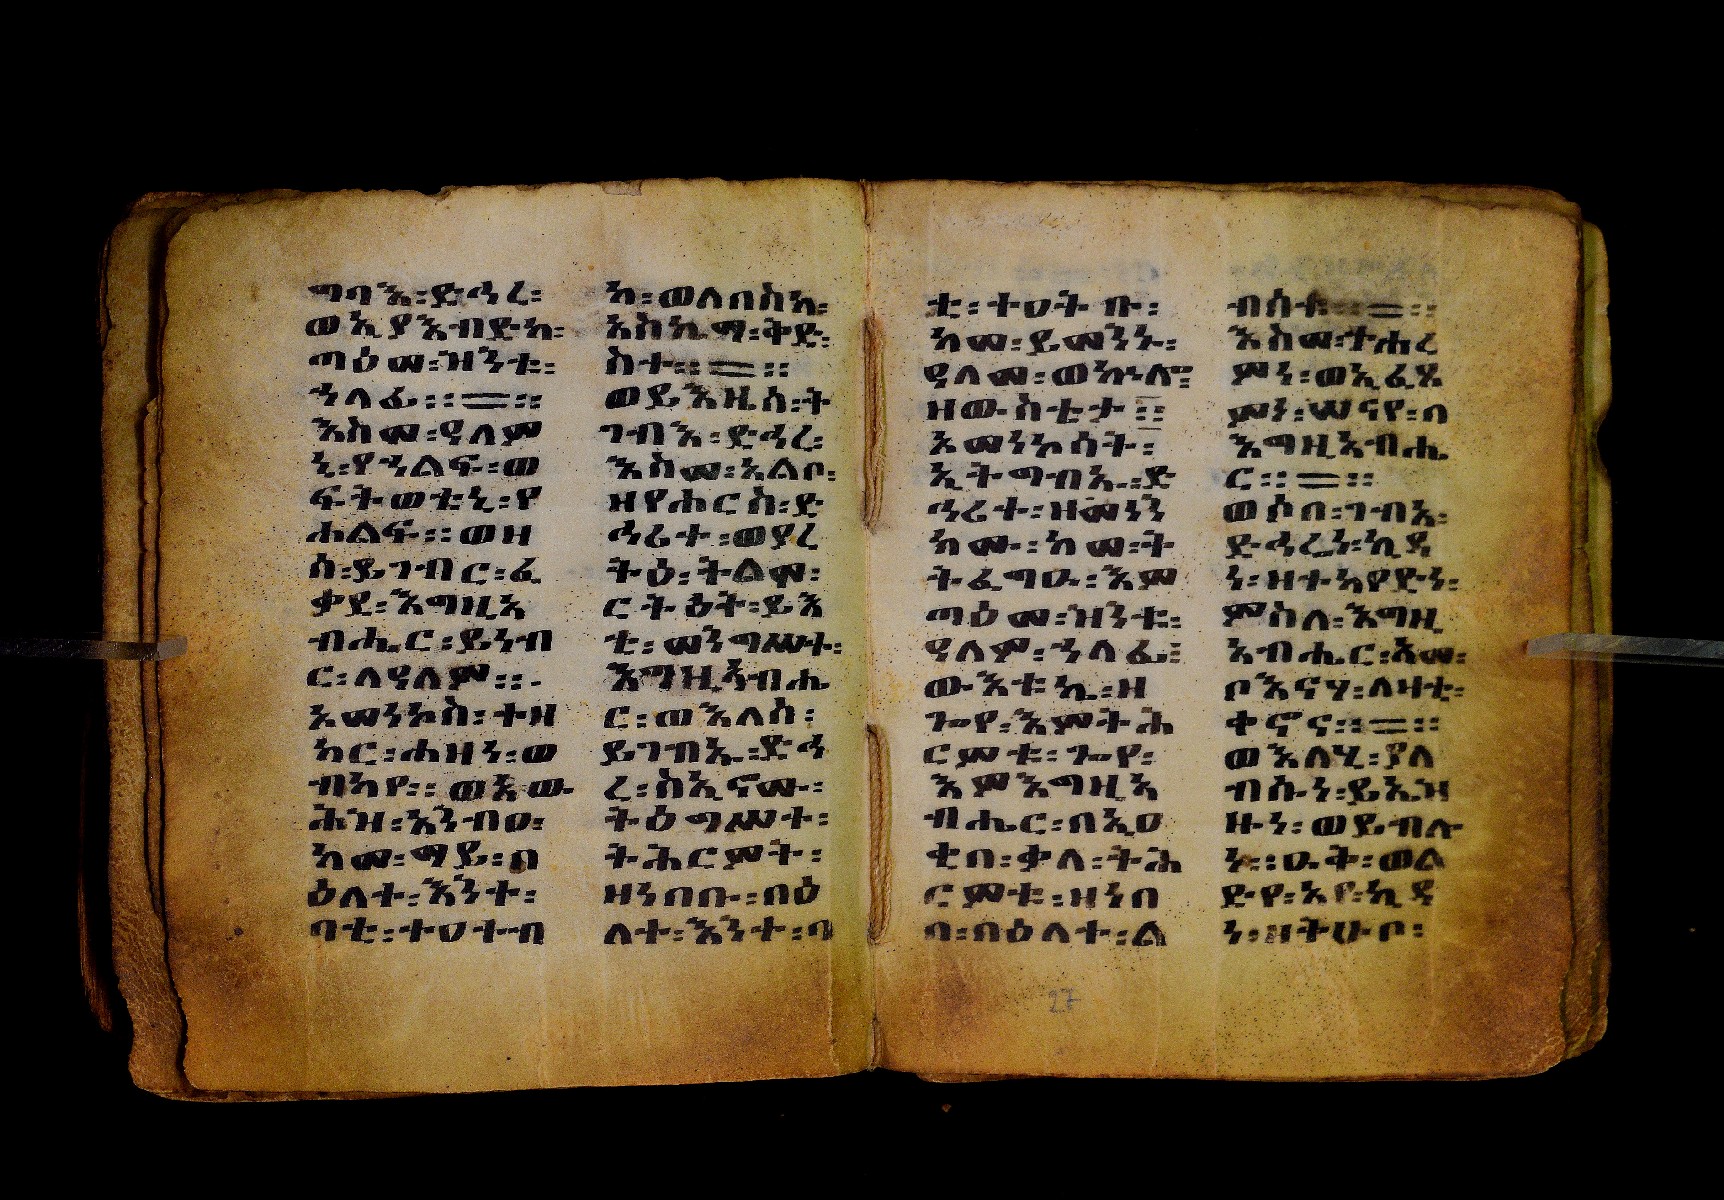 ግባእ፡ድኅረ፡
ወኢያአብድከ፡
ጣዕመ፡ዝንቱ፡
ኀላፊ፡፡=፡፡
እስመ፡ዓለም
ኒ፡የኀልፍ፡ወ
ፍትወቱኒ፡የ
ሐልፍ፡፡ወዘ
ሰ፡ይገብር፡ፈ
ቃደ፡እግዚአ
ብሔር፡ይነብ
ር፡ለዓለም፡፡
አመነኮስ፡ተዘ
ከር፡ሐዘነ፡ወ
ብካየ፡፡ወአው
ሕዝ፡አንብዐ፡
ከመ፡ማይ፡በ
ዕለተ፡እንተ፡
ባቲ፡ተሀተብ
ከ፡ወለበስከ፡
አስኬማ፡ቅድ፡
ስተ፡፡=፡፡
ወይእዚሰ፡ት
ገብእ፡ድኅረ፡
እስመ፡አልቦ፡
ዘየሐርስ፡ድ
ኅሪተ፡ወያረ
ትዕ፡ትልም፡
ርትዕት፡ይእ
ቲ፡መንግሥት፡
እግዚአብሔ
ር፡ወእለሰ፡
ይገብኡ፡ድኅ
ረ፡ስኢኖሙ፡
ትዕግሥተ፡
ትሕርምት፡
ዘነበቡ፡በዕ
ለተ፡እንተ፡ባ
ቲ፡ተሀትቡ፡
ከመ፡ይመንኑ፡
ዓለመ፡ወኵሎ፡
ዘውስቴታ፡፡
አመነኮሳት፡
ኢትግብኡ፡ድ
ኅሪተ፡ዘመነን
ክሙ፡ከመ፡ት
ትፈግዑ፡እም
ጣዕመ፡ዝንቱ፡
ዓለም፡ኀላፊ፡
ውእቱ፡ኬ፡ዘ
ጐየ፡እምትሕ
ርምቱ፡ጐየ፡
እምእግዚአ
ብሔር፡በኢሀ
ቲበ፡ቃለ፡ትሕ
ርምቱ፡ዘነበ
በ፡በዕለተ፡ል
ብሰቱ፡፡=፡፡
እስመ፡ተሐረ
ምነ፡ወኢፈጸ
ምነ፡መናየ፡በ
እግዚአብሔ
ር፡፡=፡፡
ወሶበ፡ገብአ፡
ድኅሬነ፡ኪዳ
ነ፡ዘተካየድነ፡
ምስለ፡እግዚ
አብሔር፡አመ፡
ቦእናሃ፡ለዛቲ፡
ቀኖና፡፡=፡፡
ወእለሂ፡ያለ
ብሱነ፡ይኤዝ
ዙነ፡ወይብሉ
ነ፡፡ሁት፡ወል
ድየ፡አየ፡ኪዳ
ነ፡ዘትሁቦ፡
27